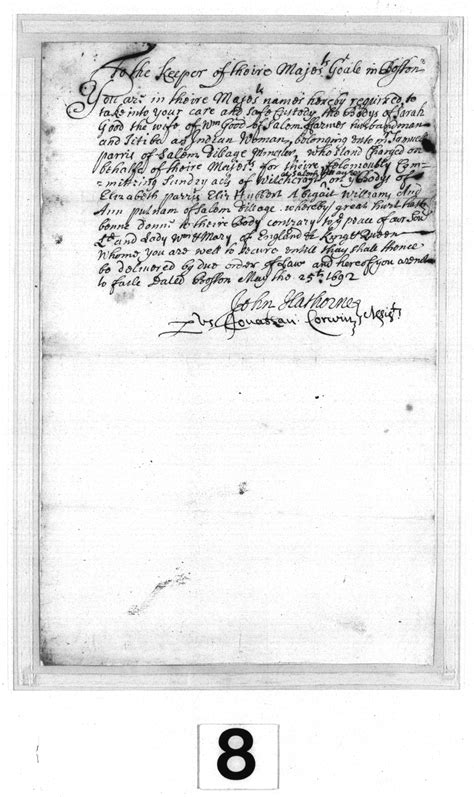 To the Keeper of theire Majests Goale in Boston
You are in theire Majests names hereby required to
take into your care and safe Custody the bodys of Sarah
Good the wife of Wm Good of Salem Farmes husbandman
and Titiba an Indian Woman, belonging unto mr Samuel
parris of Salem Village who stand Charged on
behalfe of theire Majests for theire felloniously Com-
mitting Sundry acts of Witchcraft at Salem Village on ye bodys of
Elizabeth parris Eliz Hubbert Abigail Williams And
Ann putnam of Salem Village whereby great hurt hath
benne donne to theire bodys contrary to ye peace of our Sovr
Ld and Lady Wm & Mary of England &c King & Queen
Whome you are well to secure untill thay shall thence
be delivered by due order of Law and hereof you are not
to faile Dated Boston May the 25th 1692
John Hathorne
p us Jonathan Corwin Assists
8